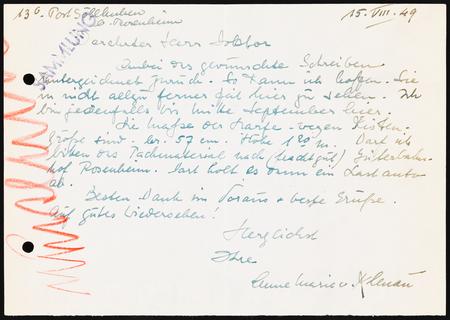 13b Post Söllhuben
b. Rosenheim
15. VIII. 49
SAMMLUNG
Herr Doktor
Anbei das gewünschte Schreiben
unterzeichnet zurück. So kann ich hoffen, Sie
in nicht allzu ferner Zeit hier zu sehen. Ich
bin jedenfalls bis Mitte September hier.
Die Maße der Harfe wegen Kisten-
größe sind: br. 57 cm. Höhe 1.80 m. Darf ich
bitten das Packmaterial nach (Frachtgut) Güterbahn-
hof Rosenheim. Dort holt es dann ein Lastauto
ab.
Besten Dank im Voraus + beste Grüße.
Auf gutes Wiedersehen!
Herzlichst
Ihre
Anne Marie v.